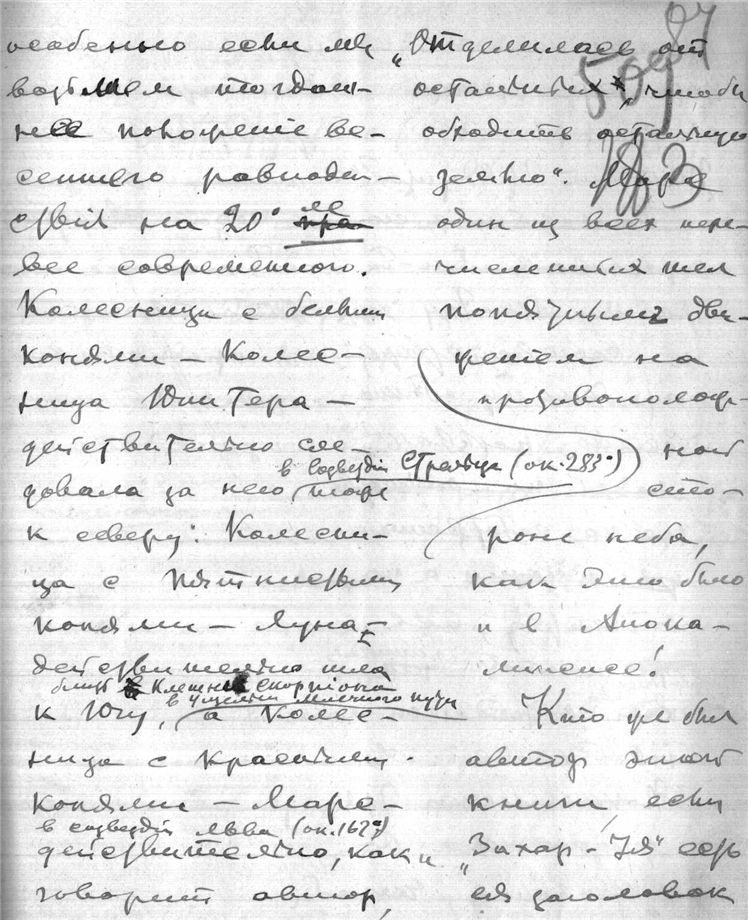 особенно если мы
возьмем тогдаш-
нее положенiе ве-
сенняго равноден-
ствiя на 20° ле
вее современного.
Колесница с белыми
конями — Колес-
ница Юпитера —
действительно сле-
в созвездiи Стрельца (ок. 283°)
довала за нею тоже
к северу: Колесни-
ца с пятнистыми
конями — Луна —
действительно шла
близ Клешней Скорпiона
в ущельи млечного пути
к Югу, а Колес-
ница с красными
конями — Марс —
в созвездiи Льва (ок. 162°)
действительно, как и
говорит автор,
„Отделилась от
остальных, чтобы
обходить остальную
землю“. Марс
один из всех пере-
численных шел
попятным дви-
жением на
противополож-
ной
сто-
роне неба,
как это было
и в Апока-
липсисе!
Кто же был
автор этой
книги, если
„Захар-Iя“ есть
ея заголовок